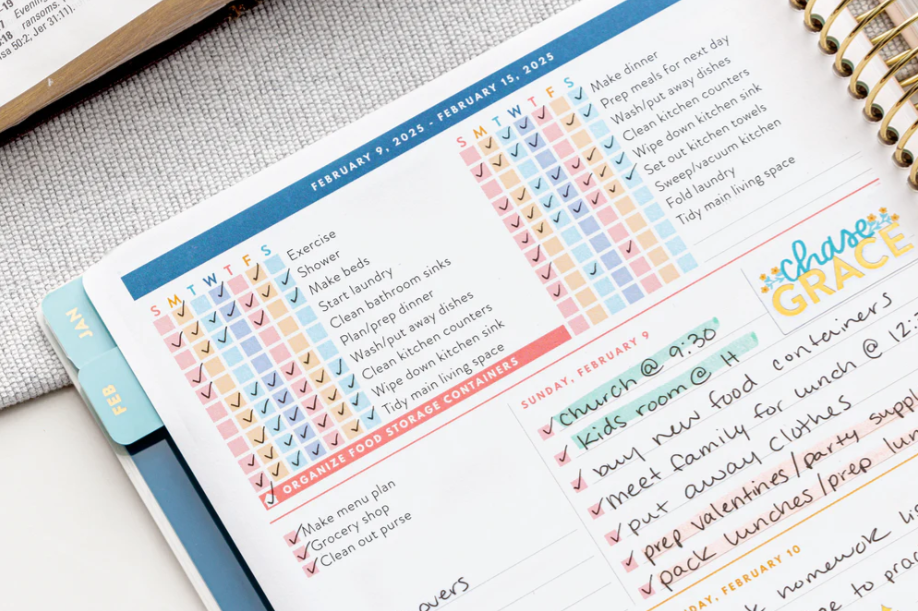 Evening
ransoms.
sa 50:2; Jer 31:11).
JAN
FEB
FEBRUARY 9, 2025 - FEBRUARY 15, 2025
S M T W T F S
Exercise
Shower
Make beds
Start laundry
Clean bathroom sinks
Plan/prep dinner
Wash/put away dishes
Clean kitchen counters
Wipe down kitchen sink
Tidy main living space
S M T W T F S
Make dinner
Prep meals for next day
Wash/put away dishes
Clean kitchen counters
Wipe down kitchen sink
Set out kitchen towels
Sweep/vacuum kitchen
Fold laundry
Tidy main living space
ORGANIZE FOOD STORAGE CONTAINERS
Make menu plan
Grocery shop
Clean out purse
overs
chase
GRACE
SUNDAY, FEBRUARY 9
church @ 9:30
kids room @ 11
buy new food containers
meet family for lunch @ 12:
put away clothes
prep valentines/party supp
pack lunches/prep lun
DAY, FEBRUARY 10
homework